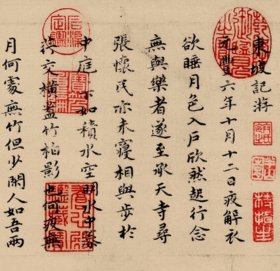 東坡記將
元豐六年十月十二日夜解衣
欲睡月色入戶欣然起行念
無與樂者遂至承天寺尋
張懷民亦未寢相與步於
中庭下如積水空明水中藻
荇交橫蓋竹柏影也何夜無
月何處無竹但少閑人如吾兩